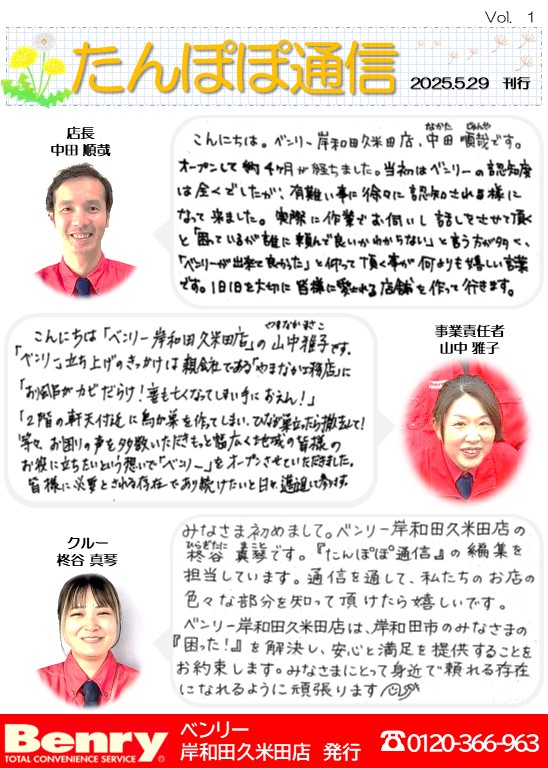 Vol. 1
たんぽぽ通信
2025.5.29 刊行
店長
中田 順哉
なかた じゅんや
こんにちは。ベンリー岸和田久米田店、中田 順哉です。
オープンして約4ヶ月が経ちました。当初はベンリーの認知度
は全くでしたが、有難い事に徐々に認知される様に
なって来ました。実際に作業でお伺いし話しをさせて頂く
と「困っているが誰に頼んで良いかわからない」と言う方が多く、
「ベンリーが出来て良かった」と仰って頂く事が何よりも嬉しい言葉
です。1日1日を大切に皆様に愛される店舗を作って行きます。
事業責任者
山中 雅子
やまなか まさこ
こんにちは「ベンリー岸和田久米田店」の山中雅子です。
「ベンリー」立ち上げのきっかけは親会社である「やまなか工務店」に
「お風呂がカビだらけ!」
「2階の軒天付近に鳥が巣を作ってしまい、ひなが巣立ったら撤去して!」
等々、お困りの声を多数いただきもっと幅広く地域の皆様の
お役に立ちたいという想いで「ベンリー」をオープンさせていただきました。
皆様に必要とされる存在であり続けたいと日々、邁進して参ります。
クルー
柊谷 真琴
ひらぎたに まこと
みなさま初めまして。ベンリー岸和田久米田店の
柊谷 真琴です。『たんぽぽ通信』の編集を
担当しています。通信を通して、私たちのお店の
色々な部分を知って頂けたら嬉しいです。
ベンリー岸和田久米田店は、岸和田市のみなさまの
『困った!』を解決し、安心と満足を提供することを
お約束します。みなさまにとって身近で頼れる存在
になれるように頑張ります
Benry
TOTAL CONVENIENCE SERVICE
ベンリー
岸和田久米田店 発行
☎0120-366-963